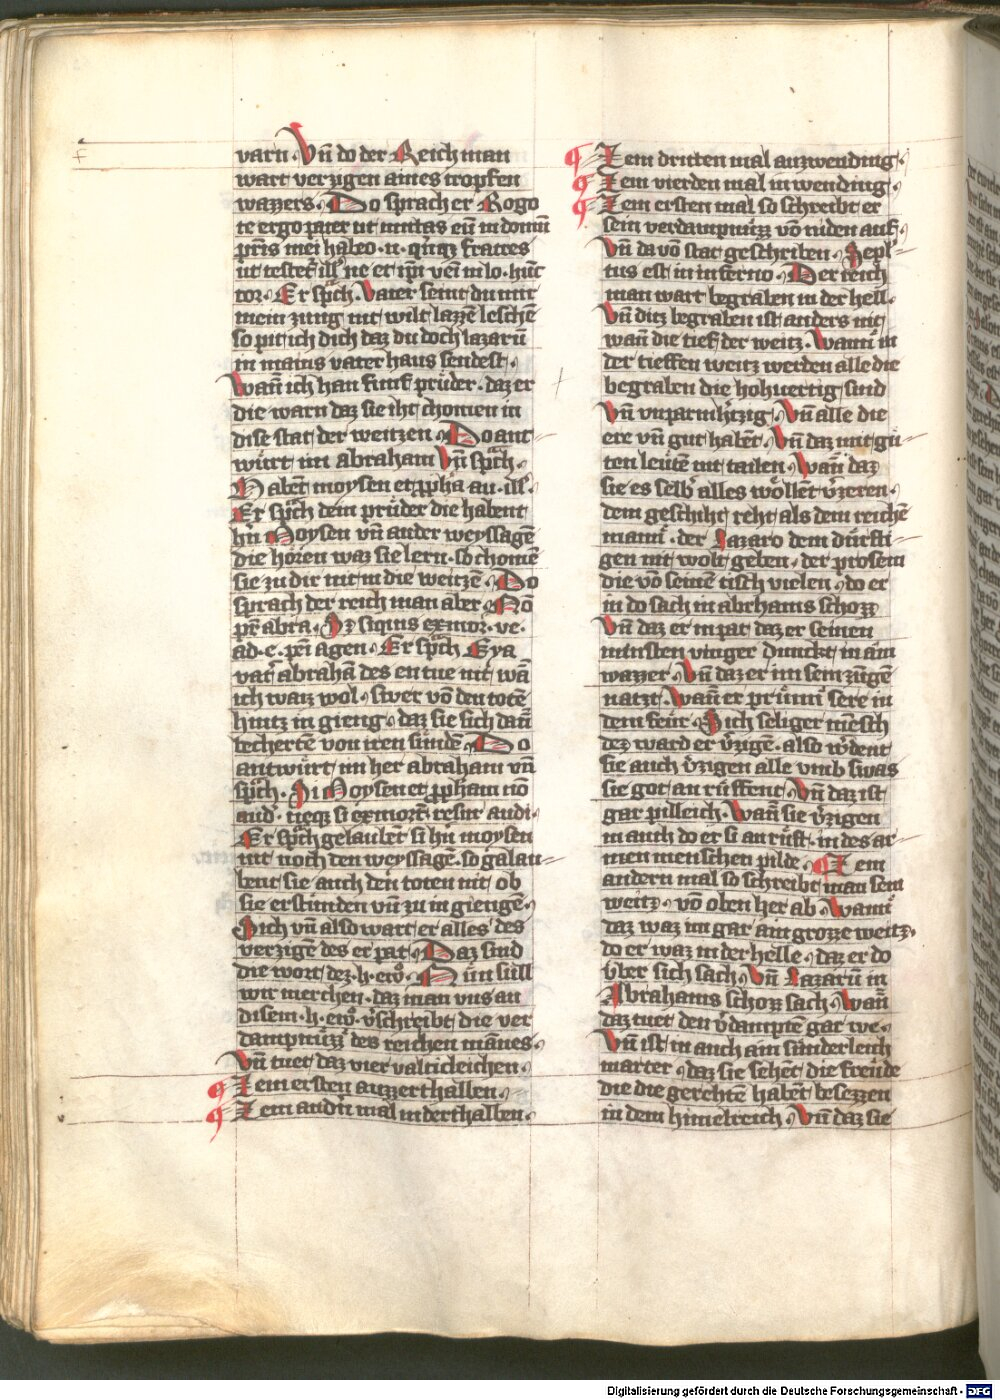 varn. Vn̄ do der Reich man
wart verzigen aines tropfen
wazzers. Do sprach er Rogo
te ergo pater ut mittas eū in domū
pr̄is mei habeo .n. qn̄qz fratres
ut testet᷑ ill᷑ ne et ip̄i veni in lo. hūc
tor. Er sp̄ch. Vater seint du mir
mein zung nit wilt lazzē leschē
so pit ich dich daz du doch lazarū
in mains vater haus sendest.
Wan̄ ich han fumf průder. daz er
die warn daz sie iht chomen in
dise stat der weitzen. Do ant
wůrt im abraham Vn̄ sp̄ch.
Habent moysen et p̄pha au. ill᷑.
Er sp̄ch dein průder die habent
hn̄ Moysen vn̄ ander weyssagē
die hoͤren waz sie lern. so chomē
sie zu dir nit in die weitzē. Do
sprach der reich man aber. No
pr̄ abra. Sz siquis ex mor. ve.
ad. e. pen̄ agen. Er sp̄ch Eya
vat᷑ abrahā des en tue nit wā
ich waiz wol. swer vō den totē
hintz in gieng. daz sie sich dan̄
bechertē von iren sůndē. Do
antwůrt im her abraham vn̄
sp̄ch. Si Moysen et p̄pham nō
aud᷑. neqz si ex mort᷑. resur᷑ audi.
Er sp̄ch gelaubēt si hn̄ moysen
nit noch den weyssagē. so galau
bent sie auch den toten nit ob
sie erstunden vn̄ zu in giengē.
Sich vn̄ also wart er alles des
verzigē des er pat. Daz sind
die wort dez. h. ewͦ. Nůn sůll
wir merchen. daz man vns an
disem. h. ewͦ. v᷑schreibt die ver
dampnůzz des reichen mānes.
Vn̄ tuet daz vier valticleichen.
Zem ersten auzzerthalben.
Zem andn̄ mal inderthalben.
Zem dritten mal auzwending.
Zem vierden mal inwending.
Zem ersten mal so schreibt er
sein verdampnůzz vō niden auf.
Vn̄ da vō stat geschriben. Sepl᷑
tus est in inferno. Der reich
man wart begraben in der hell.
Vn̄ ditz begraben ist anders nit
wan̄ die tief der weitz. Wann̄ in
der tieffen weitz werden alle die
begraben die hohuertig sind
Vn̄ vnparmhᷓtzig. Vn̄ alle die
ere vn̄ gut habēt. Vn̄ daz mit gů
ten leůtē nit tailen. Wan̄ daz
sie es selb᷑ alles woͤllēt v᷑zeren.
dem geschiht reht als dem reichē
mann̄. der Lazaro dem důrfti
gen nit wolt geben. der prosem
die vō seinē tisch vielen. do er
in do sach in abrhams schozz
Vn̄ daz er in pat daz er seinen
minsten vinger dunckt in ain
wazzer. Vn̄ daz er im sein zungē
natzt. Wan̄ er průnn̄ sere in
dem feur. Sich seliger mēsch
dez ward er v᷑zigē. also w᷑dent
sie auch v᷑zigen alle vmb swas
sie got an růffent. Vn̄ daz ist
gar pilleich. Wan̄ sie v᷑zigen
in auch do er si an růft. in des ar
men menschen pilde. Zem
andern mal so schreibt man sein
weitz. vō oben her ab. Wann̄
daz waz im gar ain grozze weitz.
do er waz in der helle. daz er do
v᷑ber sich sach. Vn̄ Lazarū in
Abrahams schozz sach. Wan̄
daz tuet den v᷑damptē gar we.
Vn̄ ist in auch ain sunderleich
marter. daz sie sehēt die freude
die die gerechtē habēt besezzen
in dem himelreich. Vn̄ daz sie
Digitalisierung gefördert durch die Deutsche Forschungsgemeinschaft - DFG